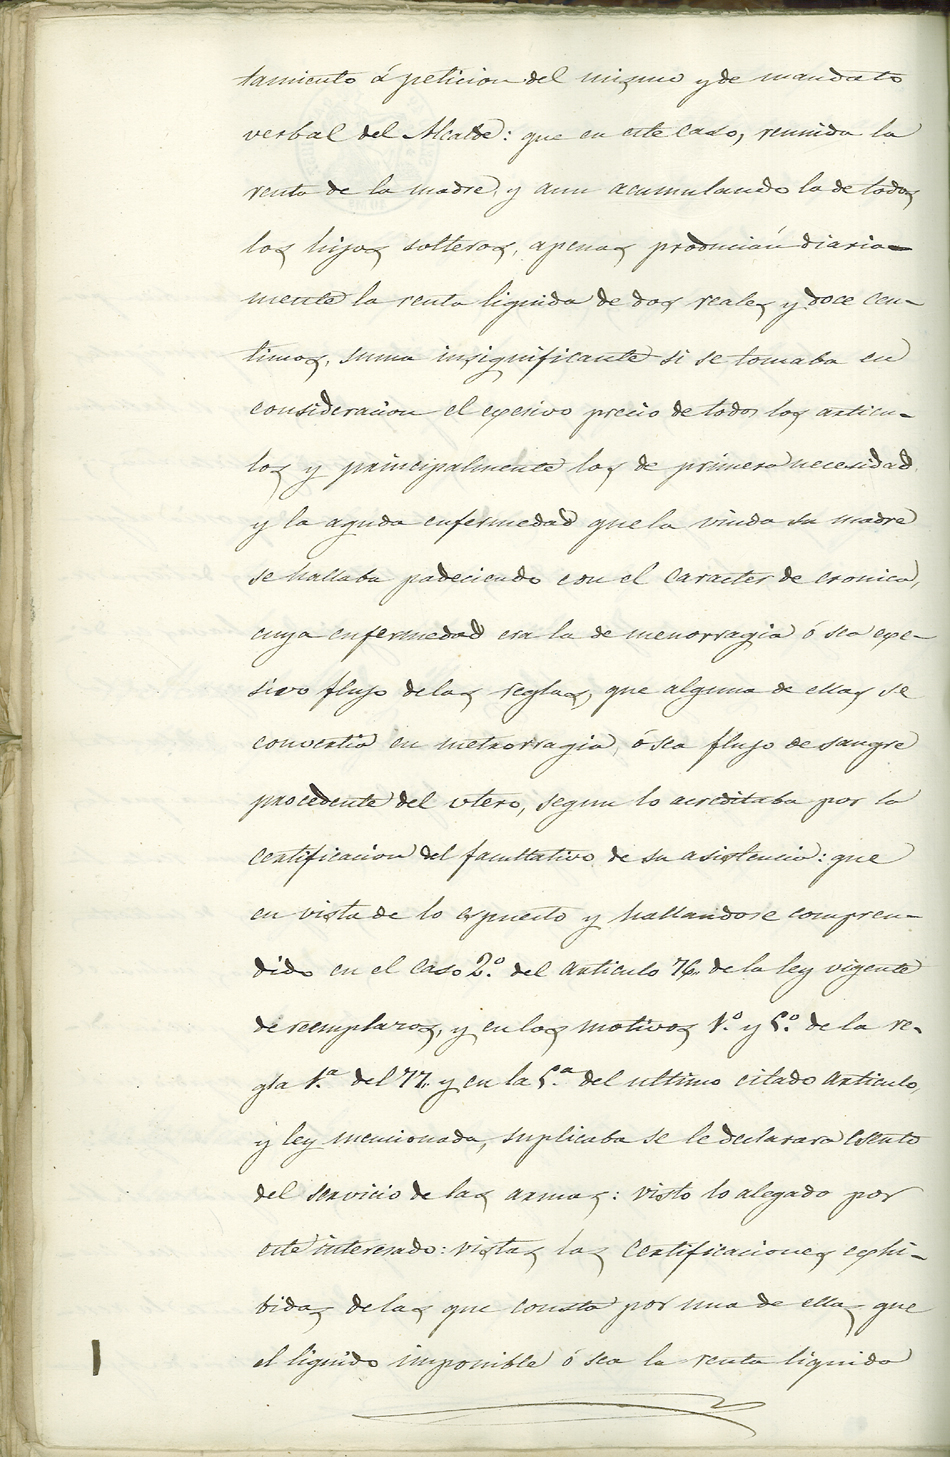 tamiento á peticion del mismo y de mandato
verbal del Alcalde: que en este caso, reunida la
renta de la madre, y aun acumulando la de todos
los hijos solteros, apenas producián diaria-
mente la renta liquida de dos reales y doce cen-
timos, suma insignificante si se tomaba en
consideracion el excesivo precio de todos los articu-
los y principalmente los de primera necesidad,
y la aguda enfermedad que la viuda su madre
se hallaba padeciendo con el caracter de cronica,
cuya enfermedad era la de menorragia ó sea exce-
sivo flujo de las reglas, que alguna de ellas se
convertia en metrorragia, ó sea flujo de sangre
procedente del utero, segun lo acreditaba por la
certificacion del facultativo de su asistencia: que
en vista de lo espuesto y hallandose compren-
dido en el caso 2.º del articulo 76. de la ley vigente
de reemplazos, y en los motivos 1.º y 5.º de la re-
gla 1.ª del 77. y en la 5.ª del ultimo citado articulo,
y ley mencionada, suplicaba se le declarara esento
del servicio de las armas: visto lo alegado por
este interesado: vistas las certificaciones exhi-
bidas de las que consta por una de ellas que
el liquido imponible ó sea la renta liquida